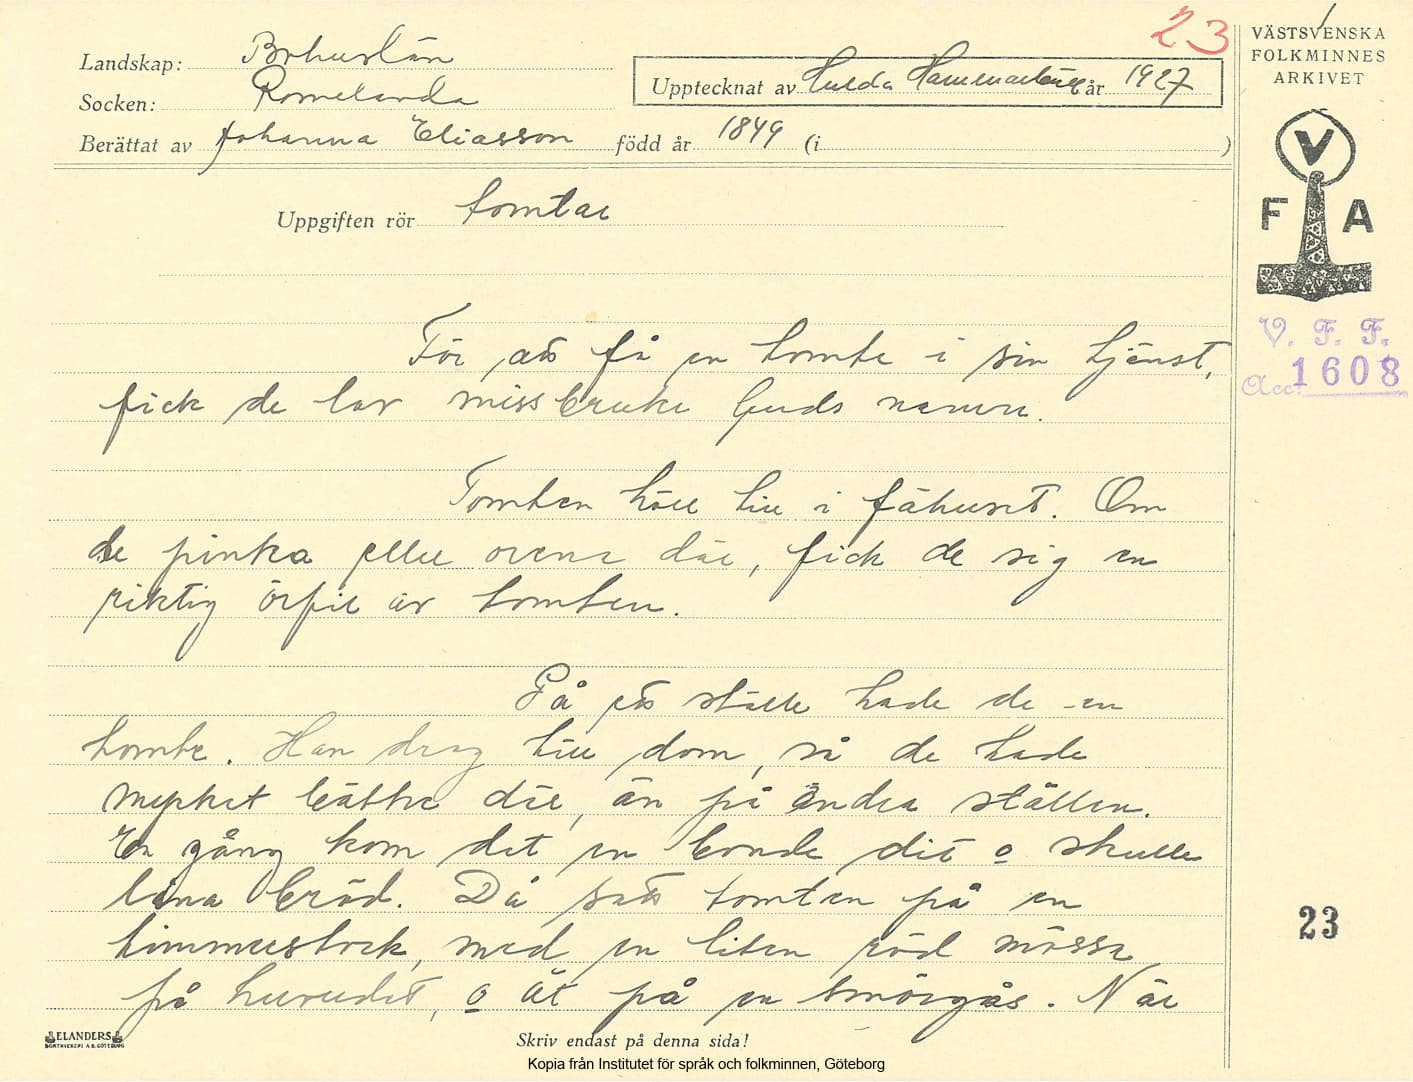 23
VÄSTSVENSKA
FOLKMINNES
ARKIVET
Landskap: Bohuslän
Socken: Romelanda
Upptecknat av Hulda Hammarbäck år 1927
Berättat av Johanna Eliasson född år 1849 (i )
Uppgiften rör tomtar
V
F A
V. F. F.
Acc. 1608
För att få en tomte i sin tjänst,
fick de lov missbruke Guds namn.
Tomten höll till i fähuset. Om
de pinka eller orena där, fick de sig en
riktig örfil av tomten.
På ett ställe hade de en
tomte. Han drog till dom, så de hade
mycket bättre där, än på andra ställen.
En gång kom det en bonde dit o skulle
låna bröd. Då satt tomten på en
timmerstock, med en liten röd mössa
på huvudet, o åt på en smörgås. När
23
ELANDERS
BOKTRYCKERI A.B. GÖTEBORG
Skriv endast på denna sida!
Kopia från Institutet för språk och folkminnen, Göteborg